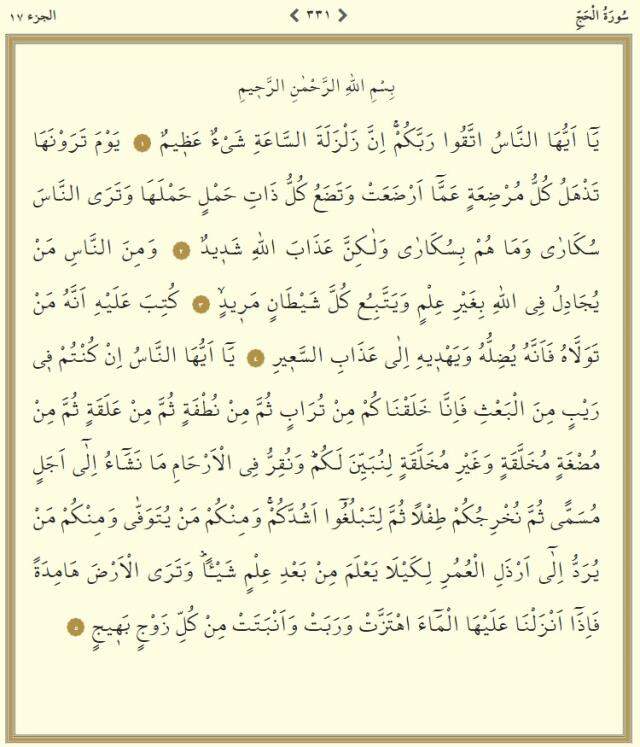 سُورَةُ الْحَجِّ ❮ ٣٣١ ❯ الجزء ١٧
بِسْمِ اللهِ الرَّحْمٰنِ الرَّحٖيمِ
يَٓا اَيُّهَا النَّاسُ اتَّقُوا رَبَّكُمْۚ اِنَّ زَلْزَلَةَ السَّاعَةِ شَيْءٌ عَظٖيمٌ ١ يَوْمَ تَرَوْنَهَا
تَذْهَلُ كُلُّ مُرْضِعَةٍ عَمَّٓا اَرْضَعَتْ وَتَضَعُ كُلُّ ذَاتِ حَمْلٍ حَمْلَهَا وَتَرَى النَّاسَ
سُكَارٰى وَمَا هُمْ بِسُكَارٰى وَلٰكِنَّ عَذَابَ اللهِ شَدٖيدٌ ٢ وَمِنَ النَّاسِ مَنْ
يُجَادِلُ فِى اللهِ بِغَيْرِ عِلْمٍ وَيَتَّبِعُ كُلَّ شَيْطَانٍ مَرٖيدٍۙ ٣ كُتِبَ عَلَيْهِ اَنَّهُ مَنْ
تَوَلَّاهُ فَاَنَّهُ يُضِلُّهُ وَيَهْدٖيهِ اِلٰى عَذَابِ السَّعٖيرِ ٤ يَٓا اَيُّهَا النَّاسُ اِنْ كُنْتُمْ فٖى
رَيْبٍ مِنَ الْبَعْثِ فَاِنَّا خَلَقْنَاكُمْ مِنْ تُرَابٍ ثُمَّ مِنْ نُطْفَةٍ ثُمَّ مِنْ عَلَقَةٍ ثُمَّ مِنْ
مُضْغَةٍ مُخَلَّقَةٍ وَغَيْرِ مُخَلَّقَةٍ لِنُبَيِّنَ لَكُمْؕ وَنُقِرُّ فِى الْاَرْحَامِ مَا نَشَٓاءُ اِلٰٓى اَجَلٍ
مُسَمًّى ثُمَّ نُخْرِجُكُمْ طِفْلًا ثُمَّ لِتَبْلُغُٓوا اَشُدَّكُمْۚ وَمِنْكُمْ مَنْ يُتَوَفّٰى وَمِنْكُمْ مَنْ
يُرَدُّ اِلٰٓى اَرْذَلِ الْعُمُرِ لِكَيْلَا يَعْلَمَ مِنْ بَعْدِ عِلْمٍ شَيْـًٔاؕ وَتَرَى الْاَرْضَ هَامِدَةً
فَاِذَٓا اَنْزَلْنَا عَلَيْهَا الْمَٓاءَ اهْتَزَّتْ وَرَبَتْ وَاَنْبَتَتْ مِنْ كُلِّ زَوْجٍ بَهٖيجٍ ٥